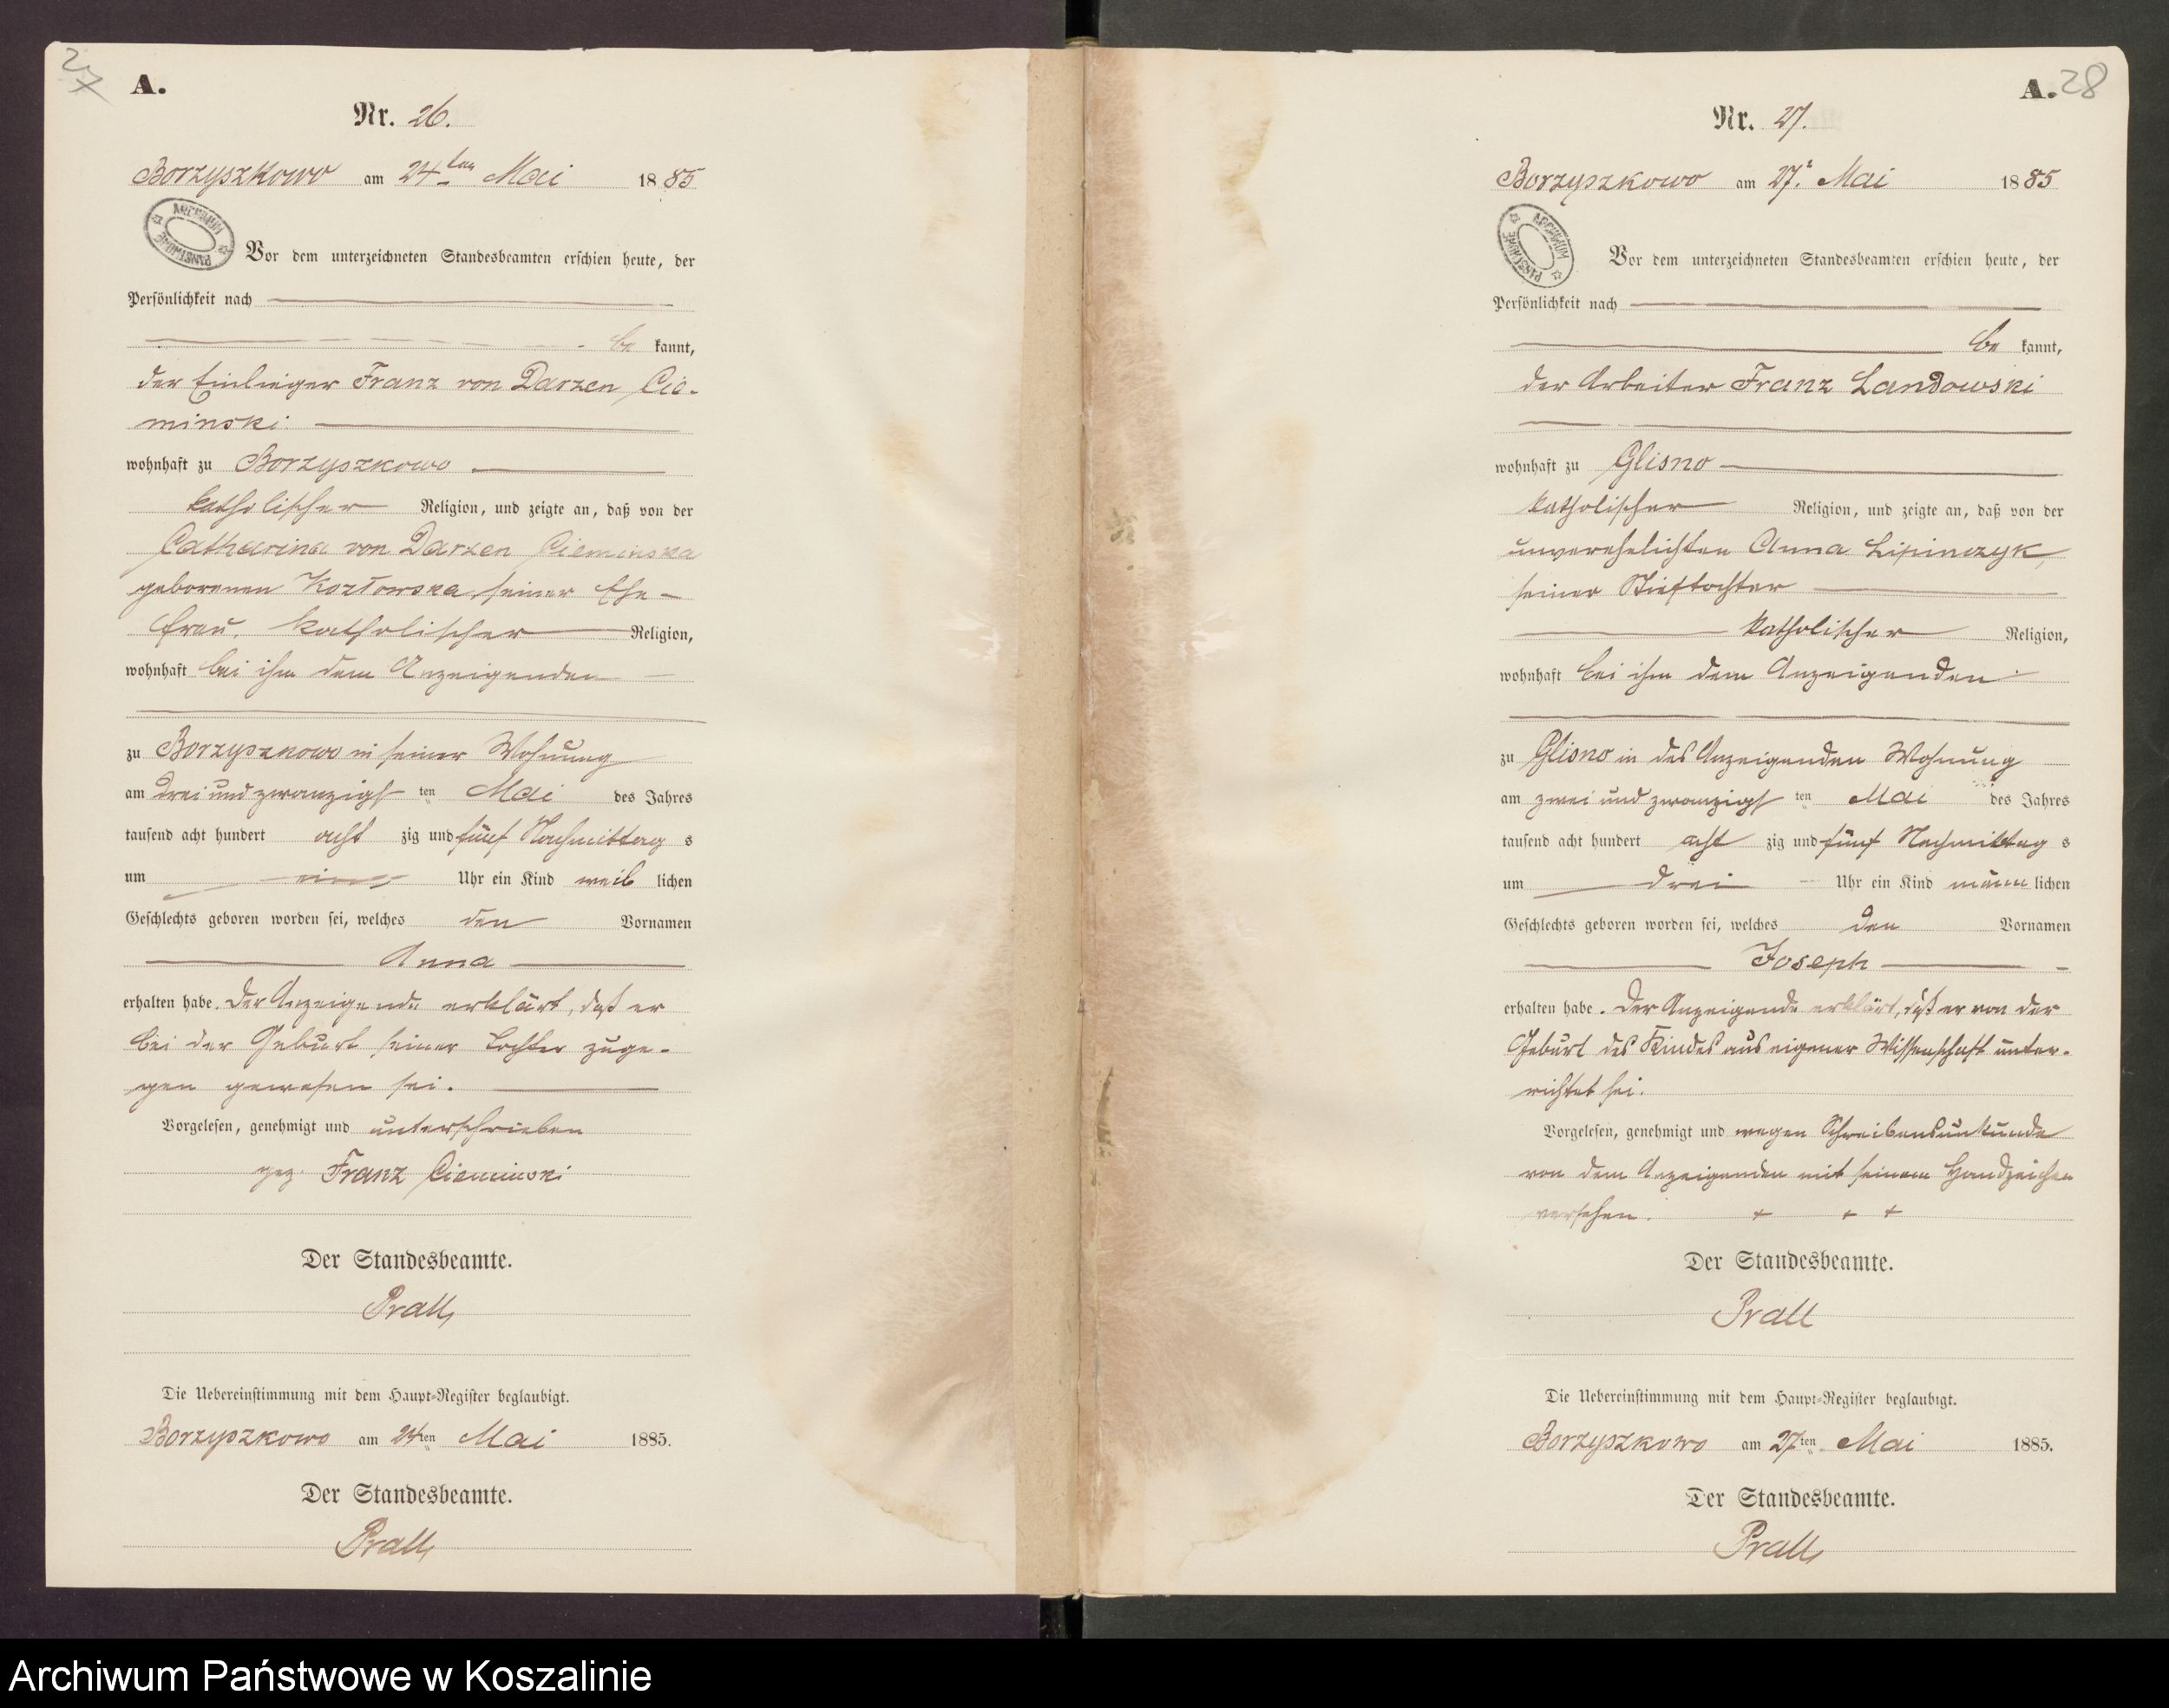 27
A.
Nr. 26.
Borzyszkowo am 24ten Mai 1885
ARCHIWUM PAŃSTWOWE
Vor dem unterzeichneten Standesbeamten erschien heute, der
Persönlichkeit nach
be kannt,
der Einlieger Franz von Darzen Cie-
minski
wohnhaft zu Borzyszkowo
katholischer Religion, und zeigte an, daß von der
Catharina von Darzen Cieminska
geborenen Kozłowska, seiner Ehe-
frau, katholischer Religion,
wohnhaft bei ihm dem Anzeigenden
zu Borzyszkowo in seiner Wohnung
am drei und zwanzigst ten Mai des Jahres
tausend acht hundert acht zig und fünf Nachmittag s
um ein Uhr ein Kind weib lichen
Geschlechts geboren worden sei, welches den Vornamen
Anna
erhalten habe. Der Anzeigende erklärt, daß er
bei der Geburt seiner Tochter zuge-
gen gewesen sei.
Vorgelesen, genehmigt und unterschrieben
gez. Franz Cieminski
Der Standesbeamte.
Prall
Die Uebereinstimmung mit dem Haupt-Register beglaubigt.
Borzyszkowo am 24ten Mai 1885.
Der Standesbeamte.
Prall
A. 28
Nr. 27.
Borzyszkowo am 27t Mai 1885
ARCHIWUM PAŃSTWOWE
Vor dem unterzeichneten Standesbeamten erschien heute, der
Persönlichkeit nach
be kannt,
der Arbeiter Franz Landowski
wohnhaft zu Glisno
katholischer Religion, und zeigte an, daß von der
unverehelichten Anna Lipinczyk,
seiner Stieftochter
katholischer Religion,
wohnhaft bei ihm dem Anzeigenden
zu Glisno in des Anzeigenden Wohnung
am zwei und zwanzigst ten Mai des Jahres
tausend acht hundert acht zig und fünf Nachmittag s
um drei Uhr ein Kind männ lichen
Geschlechts geboren worden sei, welches den Vornamen
Joseph
erhalten habe. Der Anzeigende erklärt, daß er von der
Geburt des Kindes aus eigener Wissenschaft unter-
richtet sei.
Vorgelesen, genehmigt und wegen Schreibensunkunde
von dem Anzeigenden mit seinem Handzeichen
versehen. + + +
Der Standesbeamte.
Prall
Die Uebereinstimmung mit dem Haupt-Register beglaubigt.
Borzyszkowo am 27ten Mai 1885.
Der Standesbeamte.
Prall
Archiwum Państwowe w Koszalinie